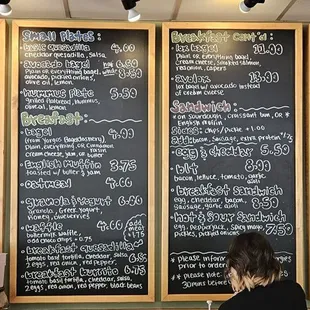 Small Plates:
basic quesadilla 4.00
cheddar quesadilla, salsa
avocado bagel 7.50
plain or everything bagel,
avocado, pickled onions,
olive oil, lemon
hummus plate 5.50
grilled flatbread, hummus,
olive oil, lemon
Breakfast:
bagel 4.00
(from Yorgo's Bagelnomery)
plain, everything, or cinnamon
cream cheese, jam or butter
English Muffin 3.75
toasted w/ butter & jam
oatmeal 4.00
granola & yogurt 6.00
Granola, Greek yogurt,
honey
waffle 4.00
buttermilk waffle,
add choco chips +.75
add
meat
+1.75
breakfast quesadilla 6.85
tomato basil tortilla, cheddar, salsa
2 eggs, red onion, red pepper
breakfast burrito 6.75
tomato basil tortilla, cheddar, salsa,
2 eggs, red onion, red pepper, black beans
Breakfast Cont'd:
lox bagel 11.00
plain or everything bagel,
cream cheese, smoked salmon,
red onion, capers
avolox 13.00
lox bagel w/ avocado instead
of cream cheese
Sandwich:
• on sourdough, croissant bun, OR *
English muffin
Sides: chips/ pickle +1.00
add: bacon, sausage, extra protein
egg & cheddar 5.50
blt 6.00
bacon, lettuce, tomato, garlic
aioli
breakfast sandwich
egg, cheddar, bacon 8.50
sausage, garlic aioli
hot & sour sandwich
egg, pepperjack, spicy mayo 7.50
pickles, pickled onions
* Please inform
* Please order
30 mins before